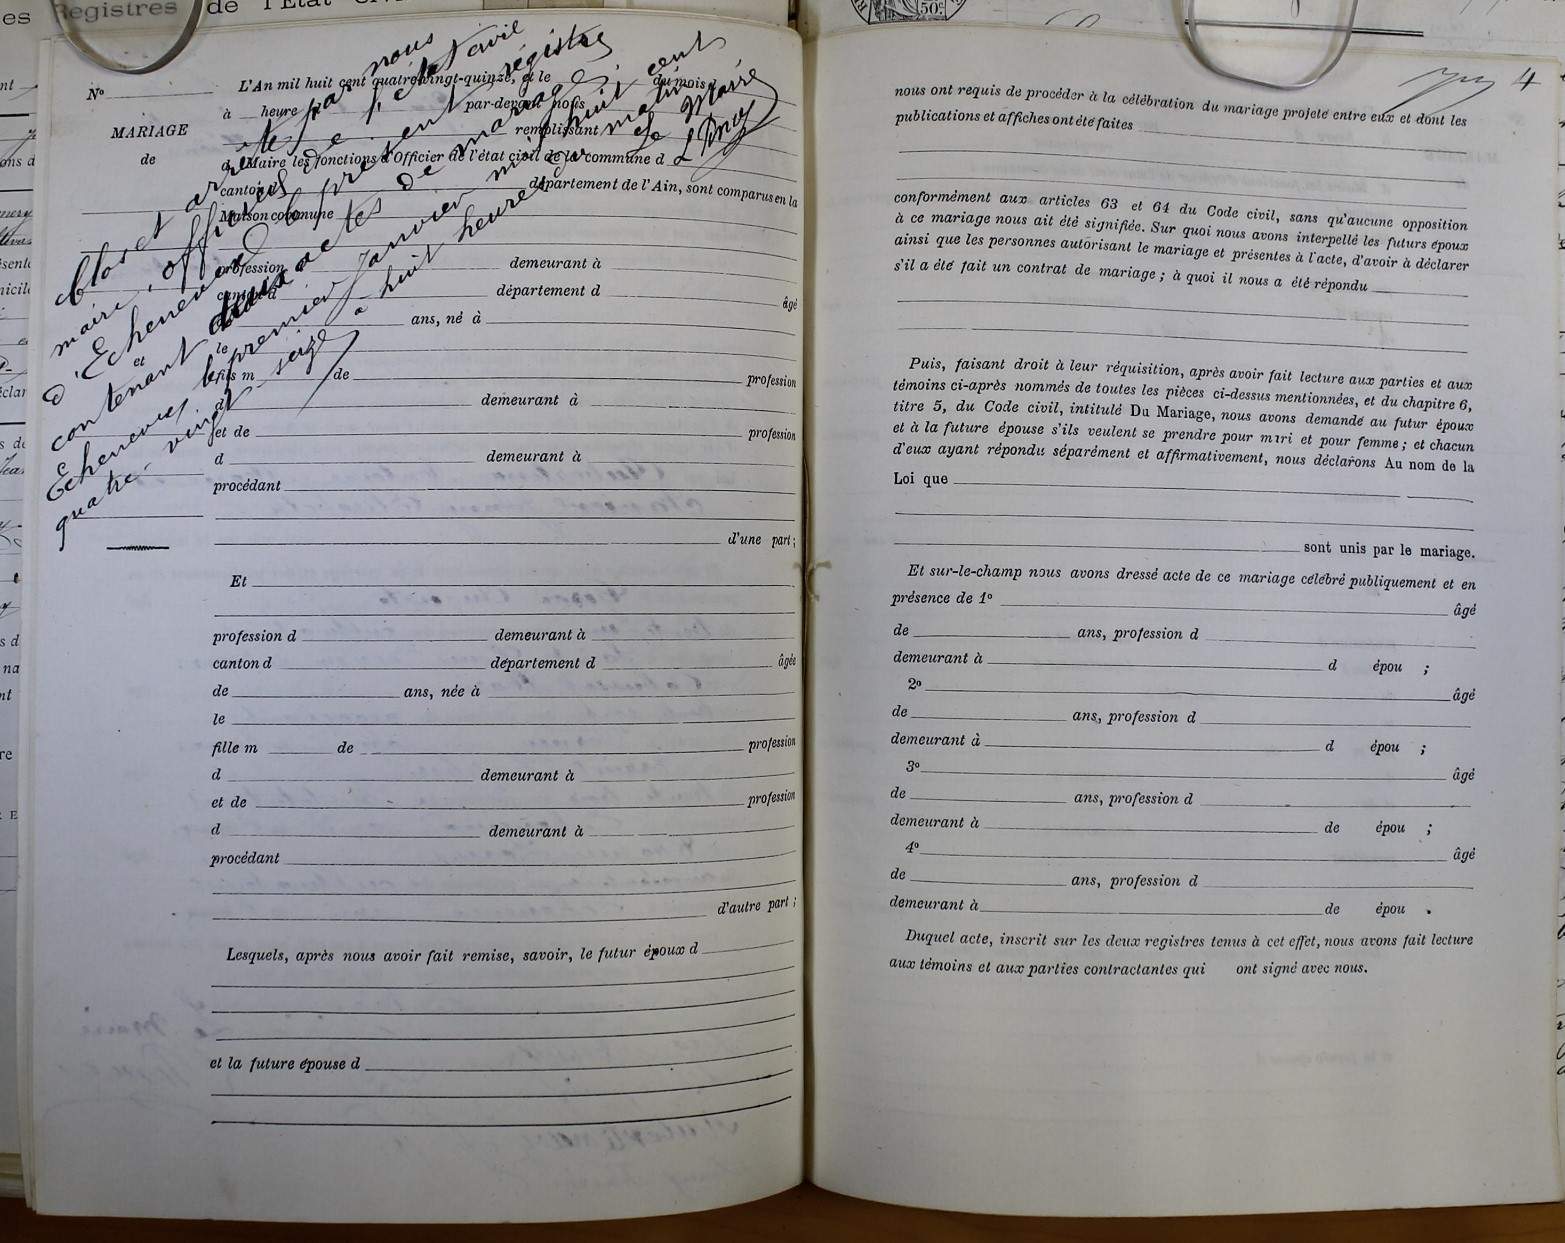 Registres de l'Etat
N°
MARIAGE
de
et
L'An mil huit cent quatre-vingt-quinze, et le du mois d
à heure d par-devant nous
remplissant
d Maire les fonctions d'Officier de l'état civil de la commune d
canton d département de l'Ain, sont comparus en la
Maison commune
profession demeurant à
canton d département d âgé
ans, né à
le
fils m de profession
d demeurant à
et de profession
d demeurant à
procédant
d'une part;
Et
profession d demeurant à
canton d département d âgée
de ans, née à
le
fille m de profession
d demeurant à
et de profession
d demeurant à
procédant
d'autre part;
Lesquels, après nous avoir fait remise, savoir, le futur époux d
et la future épouse d
Clos et arrêté par nous
maire, officier de l'état civil
d'Echenevex le présent régistre
contenant deux actes de mariage
Echenevex le premier Janvier mil huit cent
quatre-vingt seize à huit heures du matin
Le Maire
4
nous ont requis de procéder à la célébration du mariage projeté entre eux et dont les
publications et affiches ont été faites
conformément aux articles 63 et 64 du Code civil, sans qu'aucune opposition
à ce mariage nous ait été signifiée. Sur quoi nous avons interpellé les futurs époux
ainsi que les personnes autorisant le mariage et présentes à l'acte, d'avoir à déclarer
s'il a été fait un contrat de mariage; à quoi il nous a été répondu
Puis, faisant droit à leur réquisition, après avoir fait lecture aux parties et aux
témoins ci-après nommés de toutes les pièces ci-dessus mentionnées, et du chapitre 6,
titre 5, du Code civil, intitulé Du Mariage, nous avons demandé au futur époux
et à la future épouse s'ils veulent se prendre pour mari et pour femme; et chacun
d'eux ayant répondu séparément et affirmativement, nous déclarons Au nom de la
Loi que
sont unis par le mariage.
Et sur-le-champ nous avons dressé acte de ce mariage célébré publiquement et en
présence de 1° âgé
de ans, profession d
demeurant à d épou ;
2° âgé
de ans, profession d
demeurant à d épou ;
3° âgé
de ans, profession d
demeurant à de épou ;
4° âgé
de ans, profession d
demeurant à de épou .
Duquel acte, inscrit sur les deux registres tenus à cet effet, nous avons fait lecture
aux témoins et aux parties contractantes qui ont signé avec nous.